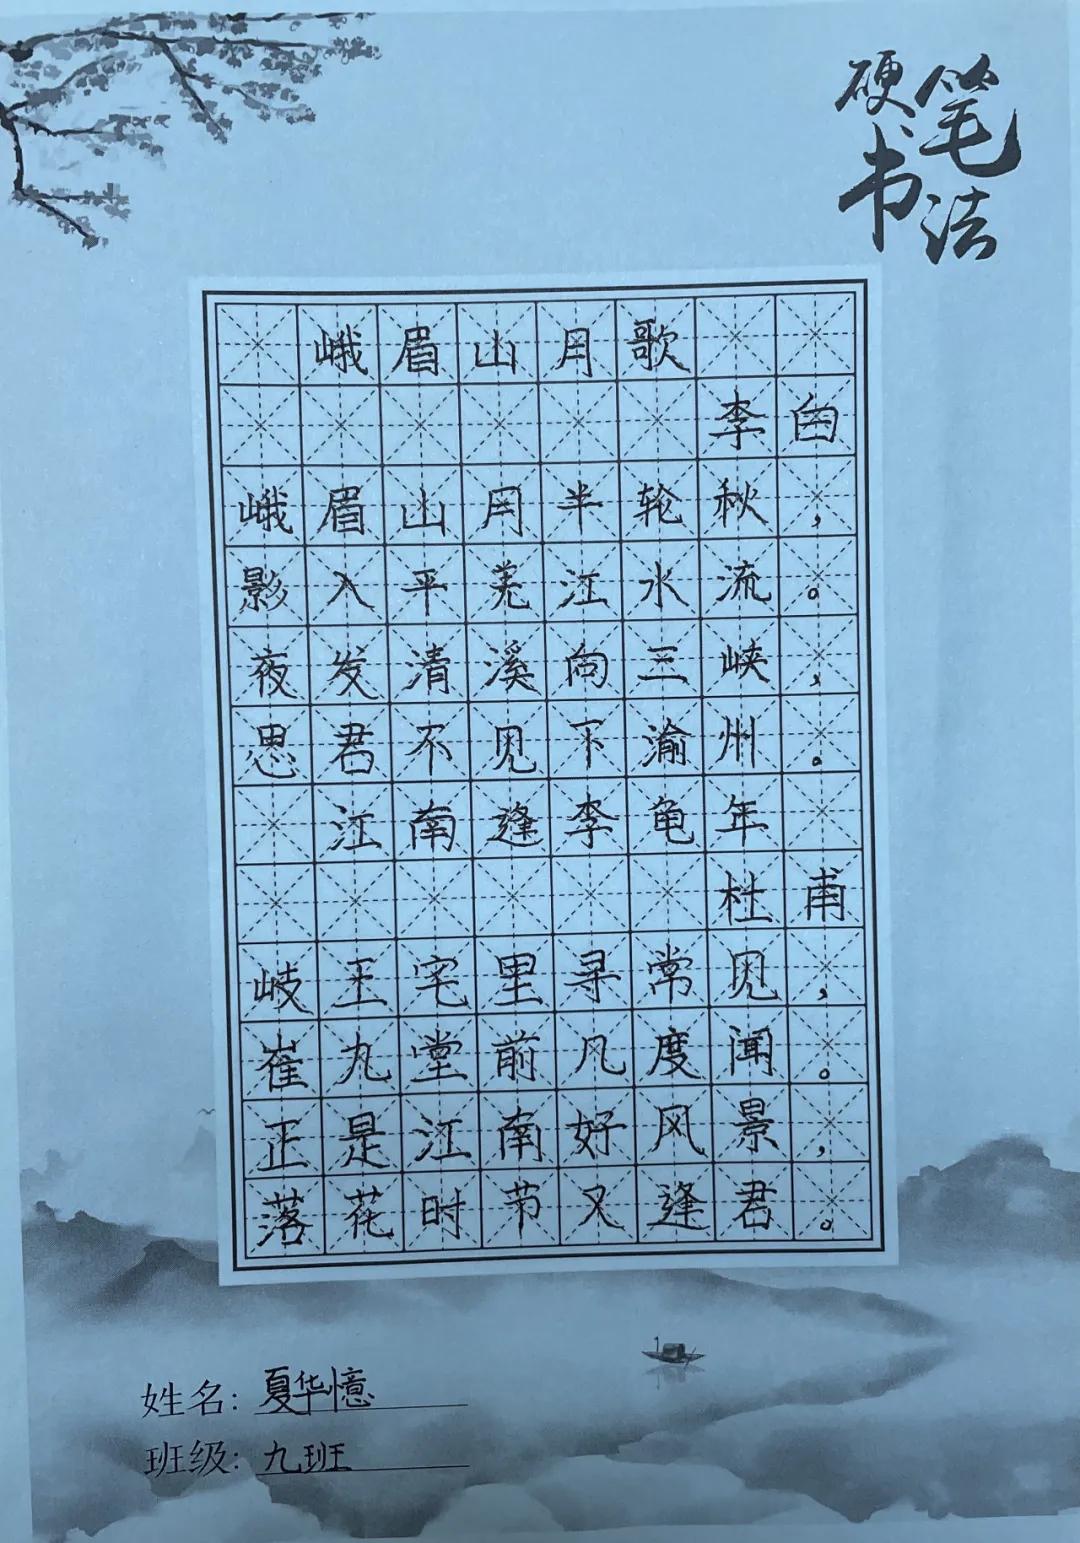 硬笔书法
峨眉山月歌
李白
峨眉山月半轮秋，
影入平羌江水流。
夜发清溪向三峡，
思君不见下渝州。
江南逢李龟年
杜甫
岐王宅里寻常见，
崔九堂前几度闻。
正是江南好风景，
落花时节又逢君。
姓名：夏华憶
班级：九班